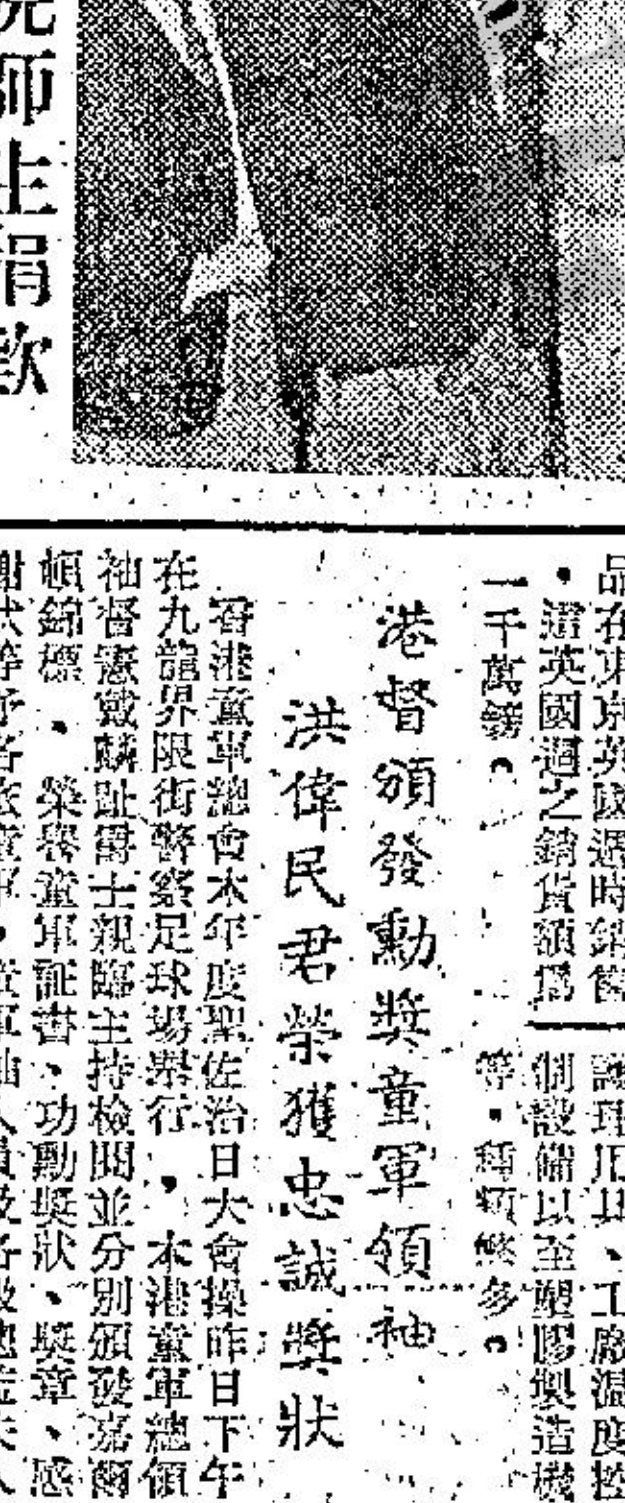 院師生捐欵
品在東京英國週時銷售
・這英國週之銷貨額爲
一千萬鎊。
制設備以至塑膠製造機
等・種類繁多。
港督頒發勳獎童軍領袖
洪偉民君榮獲忠誠獎狀
香港童軍總會本年度聖佐治日大會操昨日下午
在九龍界限街警察足球場舉行，本港童軍總領
袖督憲戴麟趾爵士親臨主持檢閱並分別頒發嘉爾
頓錦標、榮譽童軍証書、功勳獎狀、獎章、感
謝狀等予各旅童軍，童軍